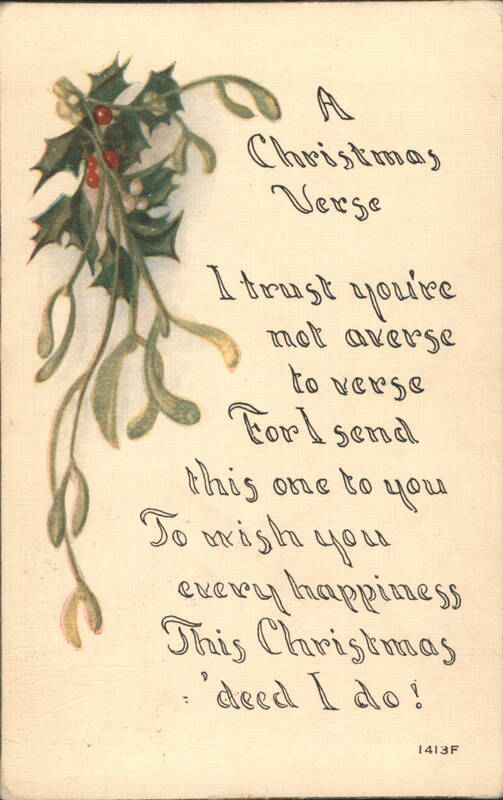 A
Christmas
Verse
I trust you're
not averse
to verse
For I send
this one to you
To wish you
every happiness
This Christmas
'deed I do!
1413F